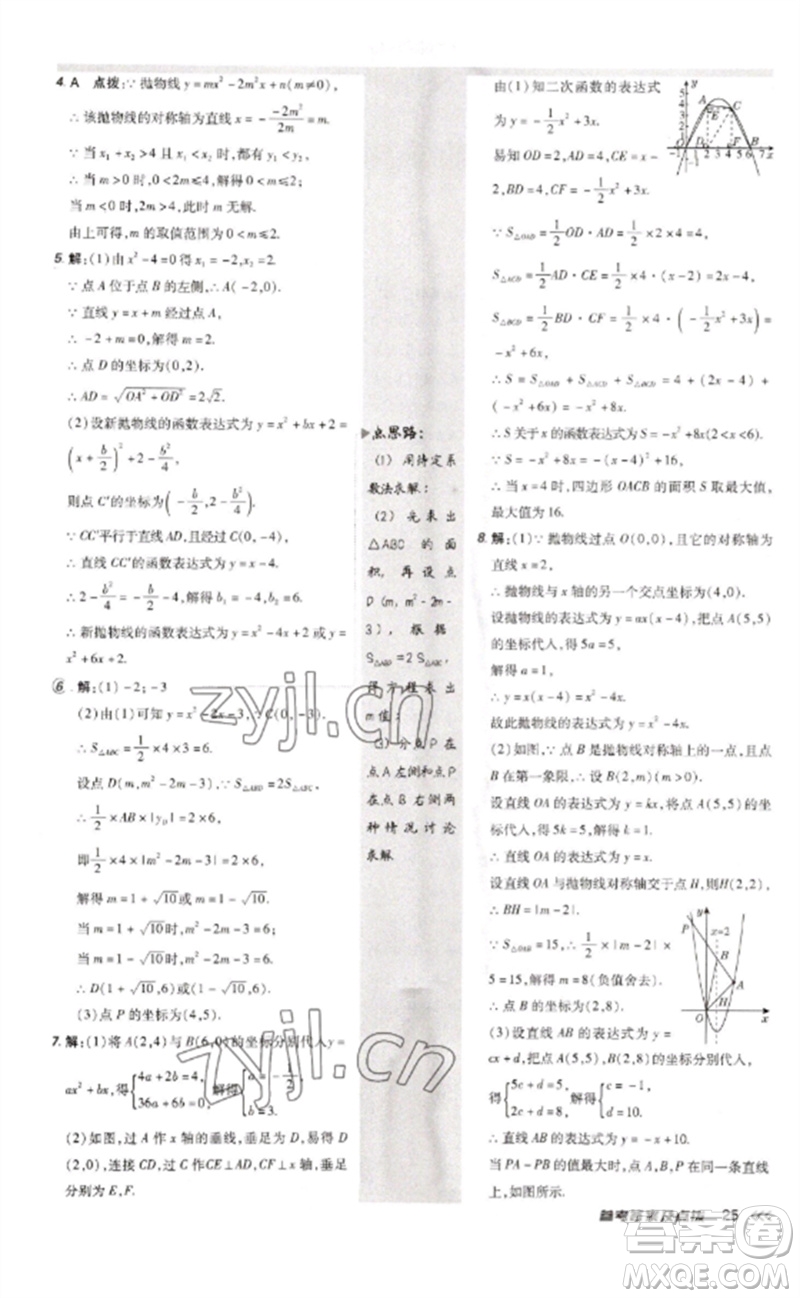 4. A 点拨：∵ 抛物线 y=mx²-2m²x+n(m≠0)，
∴ 该抛物线的对称轴为直线 x=-\frac{-2m²}{2m}=m.
∵ 当 x₁+x₂>4 且 x₁<x₂ 时，都有 y₁<y₂，
∴ 当 m>0 时，2m≤4，解得 0<m≤2；
当 m<0 时，2m>4，此时 m 无解.
由上可得，m 的取值范围为 0<m≤2.
5. 解：(1)由 x²-4=0 得 x₁=-2，x₂=2.
∵ 点 A 位于点 B 的左侧，∴ A(-2,0).
∵ 直线 y=x+m 经过点 A，
∴ -2+m=0，解得 m=2.
∴ 点 D 的坐标为(0,2).
∴ AD=√(OA²+OD²)=2√2.
(2)设新抛物线的函数表达式为 y=x²+bx+2=
(x+\frac{b}{2})²+2-\frac{b²}{4}，
则点 C′的坐标为(-\frac{b}{2},2-\frac{b²}{4}).
∵ CC′平行于直线 AD，且经过 C(0,-4)，
∴ 直线 CC′的函数表达式为 y=x-4.
∴ 2-\frac{b²}{4}=-\frac{b}{2}-4，解得 b₁=-4，b₂=6.
∴ 新抛物线的函数表达式为 y=x²-4x+2 或 y=
x²+6x+2.
6. 解：(1)-2；-3
(2)由(1)可知 y=x²-2x-3，∵ C(0,-3)，
∴ S△ABC=\frac{1}{2}×4×3=6.
设点 D(m,m²-2m-3)，∵ S△ABD=2S△ABC，
∴ \frac{1}{2}×AB×|y_D|=2×6，
即 \frac{1}{2}×4×|m²-2m-3|=2×6，
解得 m=1+√10 或 m=1-√10.
当 m=1+√10 时，m²-2m-3=6；
当 m=1-√10 时，m²-2m-3=6，
∴ D(1+√10,6)或(1-√10,6).
(3)点 P 的坐标为(4,5).
7. 解：(1)将 A(2,4)与 B(6,0)的坐标分别代入 y=
ax²+bx，得{4a+2b=4, 36a+6b=0, 解得{a=-\frac{1}{2}, b=3.
(2)如图，过 A 作 x 轴的垂线，垂足为 D，易得 D
(2,0)，连接 CD，过 C 作 CE⊥AD，CF⊥x 轴，垂足
分别为 E，F.
点思路：
(1) 用待定系
数法求解；
(2) 先求出
△ABC 的面
积，再设点
D(m,m²-2m-
3)，根据
S△ABD=2S△ABC
得方程求出
m 值；
(3) 分点 P 在
点 A 左侧和点 P
在点 B 右侧两
种情况讨论
求解.
由(1)知二次函数的表达式
为 y=-\frac{1}{2}x²+3x.
易知 OD=2，AD=4，CE=x-
2，BD=4，CF=-\frac{1}{2}x²+3x.
∵ S△OAD=\frac{1}{2}OD·AD=\frac{1}{2}×2×4=4，
S△ACD=\frac{1}{2}AD·CE=\frac{1}{2}×4×(x-2)=2x-4，
S△BCD=\frac{1}{2}BD·CF=\frac{1}{2}×4×(-\frac{1}{2}x²+3x)=
-x²+6x，
∴ S=S△OAD+S△ACD+S△BCD=4+(2x-4)+
(-x²+6x)=-x²+8x.
∴ S 关于 x 的函数表达式为 S=-x²+8x(2<x<6).
∵ S=-x²+8x=-(x-4)²+16，
∴ 当 x=4 时，四边形 OACB 的面积 S 取最大值，
最大值为 16.
8. 解：(1)∵ 抛物线过点 O(0,0)，且它的对称轴为
直线 x=2，
∴ 抛物线与 x 轴的另一个交点坐标为(4,0).
设抛物线的表达式为 y=ax(x-4)，把点 A(5,5)
的坐标代入，得 5a=5，
解得 a=1，
∴ y=x(x-4)=x²-4x.
故此抛物线的表达式为 y=x²-4x.
(2)如图，∵ 点 B 是抛物线对称轴上的一点，且点
B 在第一象限，∴ 设 B(2,m)(m>0).
设直线 OA 的表达式为 y=kx，将点 A(5,5)的坐标
代入，得 5k=5，解得 k=1，
∴ 直线 OA 的表达式为 y=x.
设直线 OA 与抛物线对称轴交于点 H，则 H(2,2)，
∴ BH=|m-2|.
∵ S△OAB=15，∴ \frac{1}{2}×|m-2|×
5=15，
解得 m=8(负值舍去).
∴ 点 B 的坐标为(2,8).
(3)设直线 AB 的表达式为 y=
cx+d，把点 A(5,5)，B(2,8)的坐标分别代入，
得{5c+d=5, 2c+d=8, 解得{c=-1, d=10.
∴ 直线 AB 的表达式为 y=-x+10.
当 PA-PB 的值最大时，点 A，B，P 在同一条直线
上，如图所示.
参考答案及点拨 25
zyjl.cn
zyjl.cn
答案圈
MXQE.COM